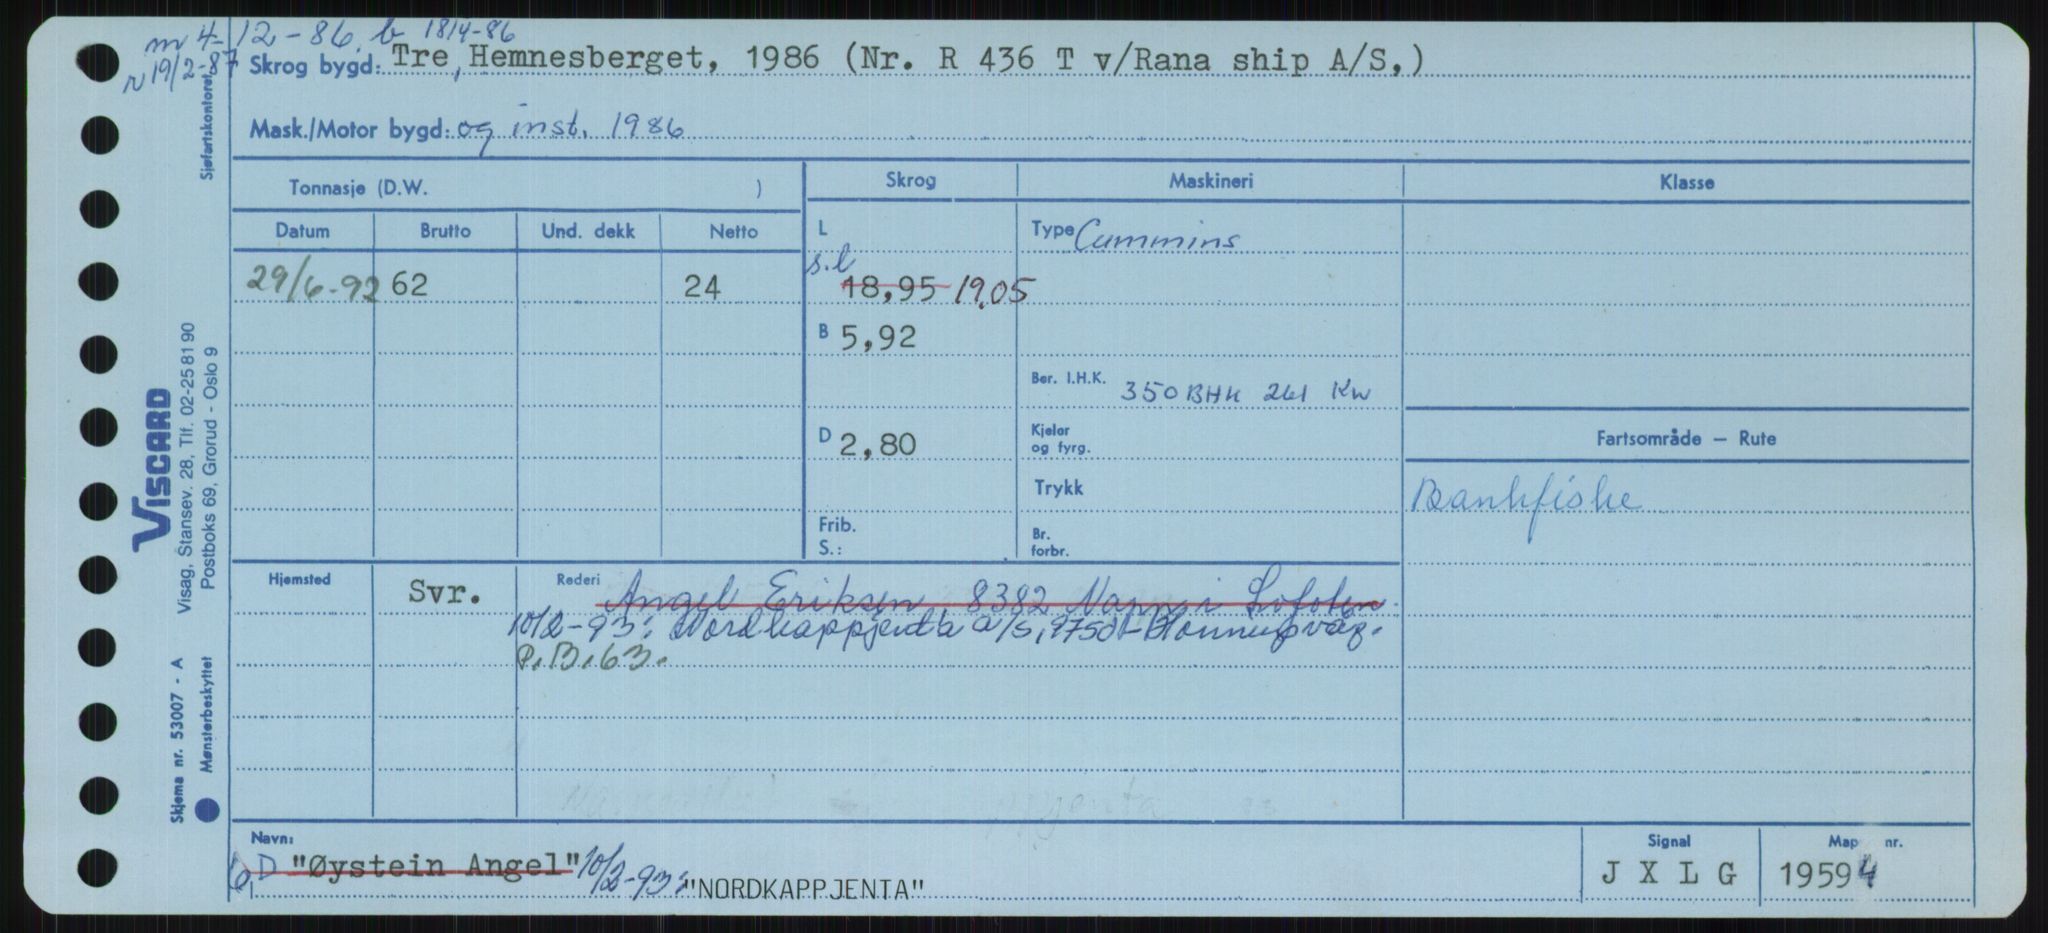 m 4-12-86. b 18/4-86
N 19/2-87
Skrog bygd: Tre, Hemnesberget, 1986 (Nr. R 436 T v/Rana ship A/S,)
Sjøfartskontoret
Mask./Motor bygd: og inst. 1986
Tonnasje (D.W. )
Skrog Maskineri Klasse
Datum Brutto Und. dekk Netto
L
Type Cummins
29/6-92 62 24
s.l 18,95 19.05
B 5,92
Ber. I.H.K. 350 BHK 261 Kw
D 2,80
Kjelar og fyrg.
Fartsområde — Rute
Trykk
Bankfiske
Frib. S.:
Br. forbr.
Hjemsted Svr.
Rederi Angel Eriksen 8382 Napp i Lofoten
10/2-93: Nordkappjenta a/s, 9750 Honningsvåg.
P.B. 63.
jenta
Navn: D "Øystein Angel" 10/2-93: "NORDKAPPJENTA"
Signal J X L G
Map nr. 19594
VISCARD
Visag, Stansev. 28, Tlf. 02-25 81 90
Postboks 69, Grorud - Oslo 9
Skjema nr. 53007 - A
Mønsterbeskyttet